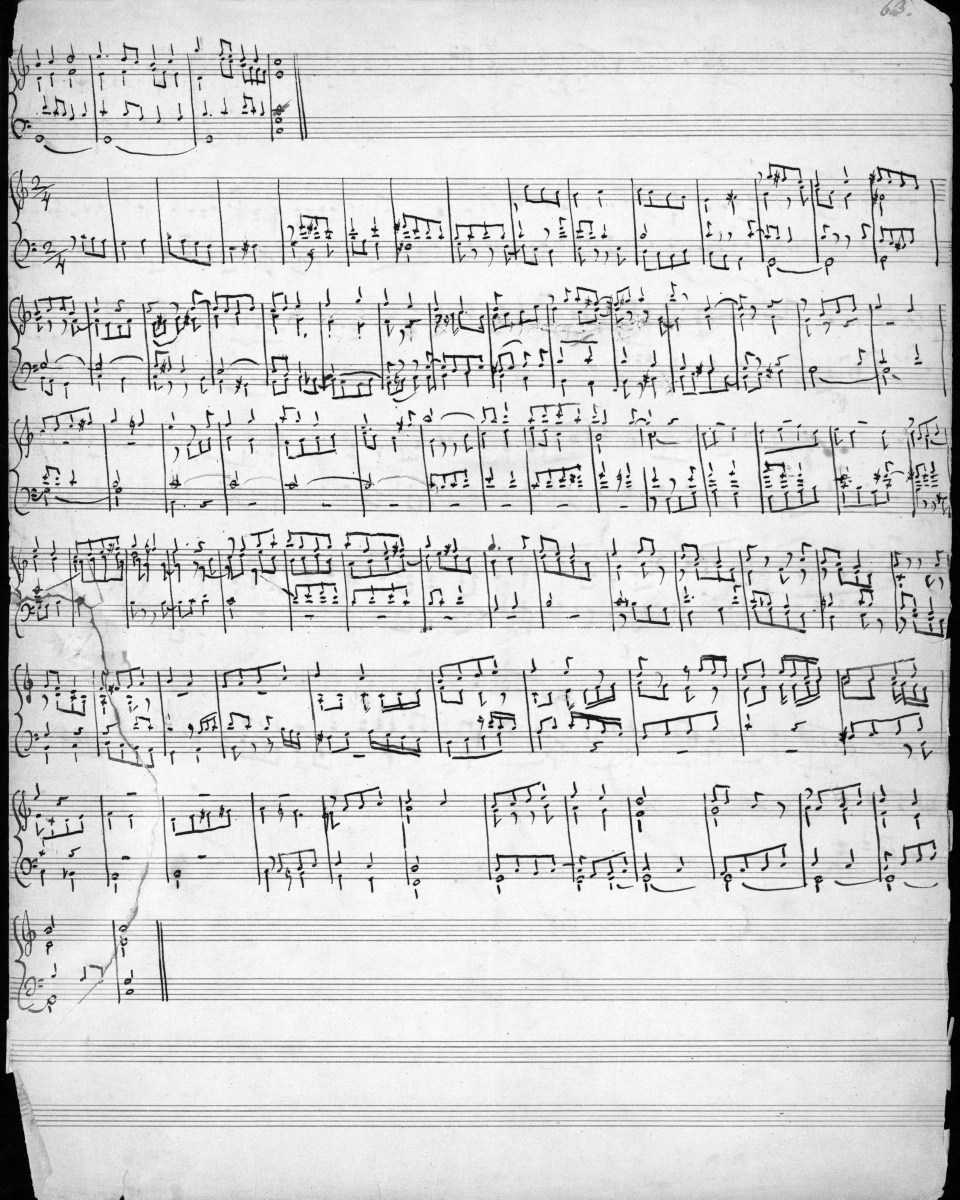 63.
2/4
2/4